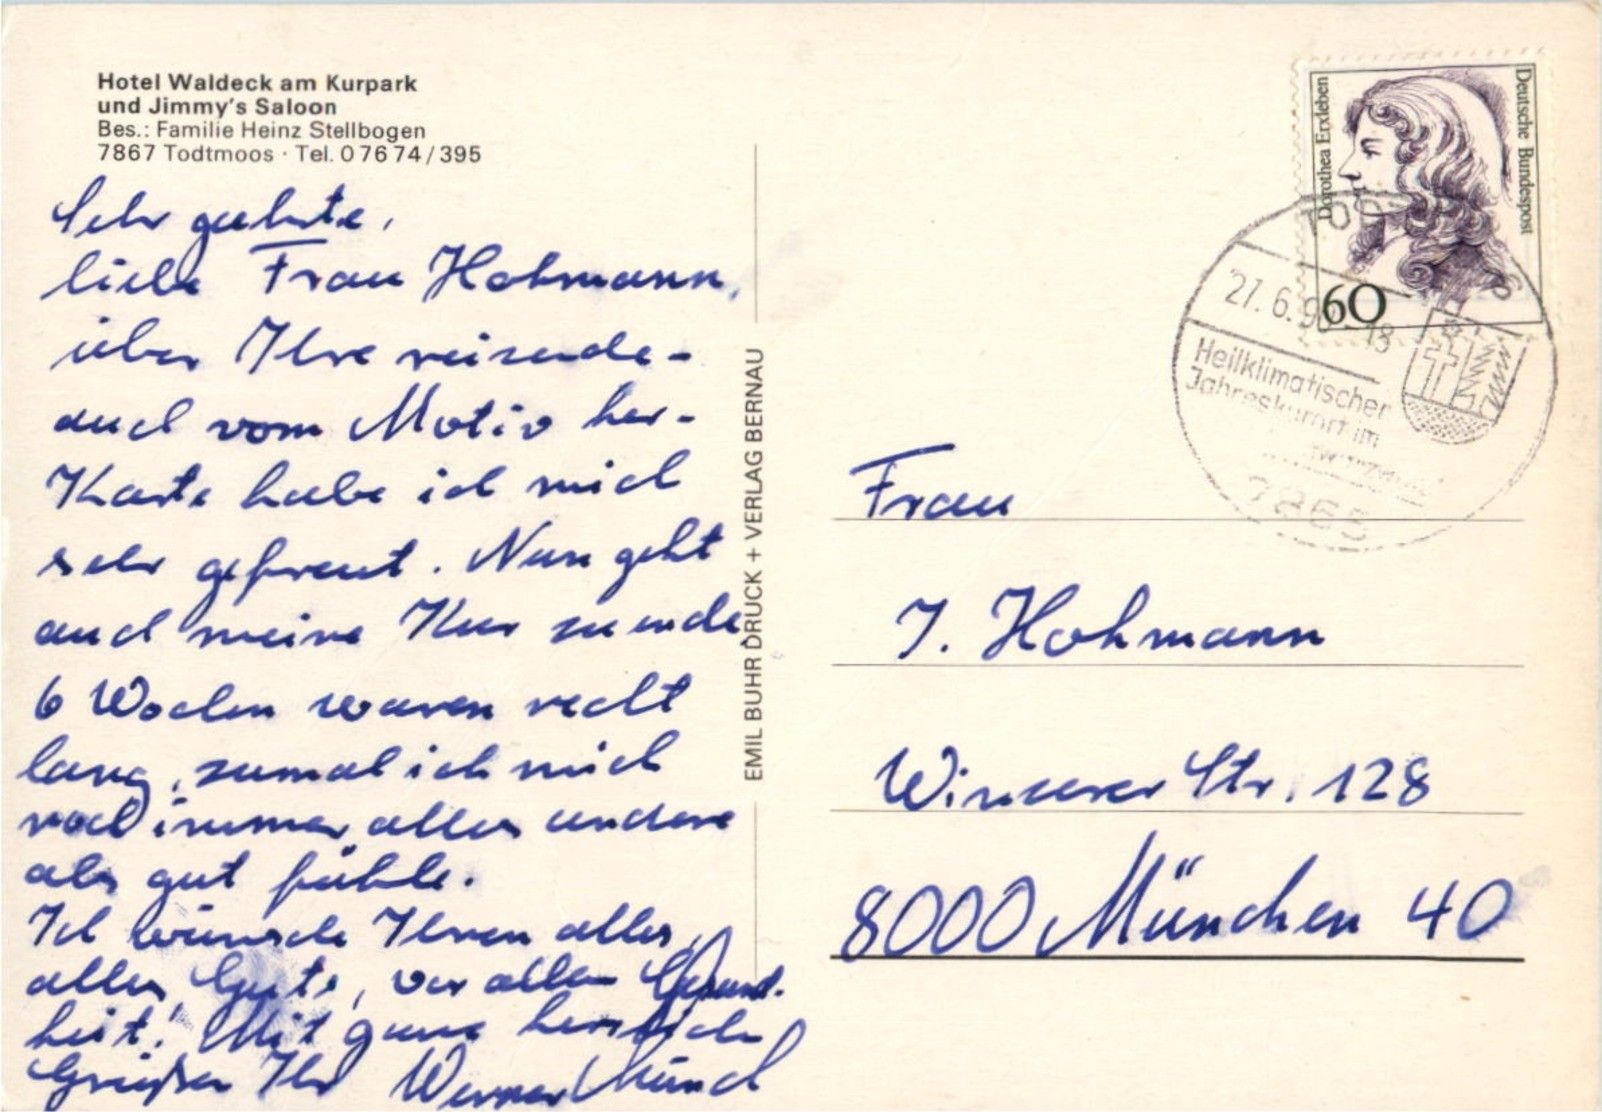 Hotel Waldeck am Kurpark
und Jimmy's Saloon
Bes.: Familie Heinz Stellbogen
7867 Todtmoos · Tel. 0 76 74 / 395
Sehr geehrte,
liebe Frau Hohmann,
über Ihre reizende -
auch vom Motiv her -
Karte habe ich mich
sehr gefreut. Nun geht
auch meine Kur zuende.
6 Wochen waren recht
lang, zumal ich mich
noch immer alles andere
als gut fühle.
Ich wünsche Ihnen alles,
alles Gute, vor allem Gesund-
heit! Mit ganz herzlichen
Grüßen Ihr Werner Münch
EMIL BUHR DRUCK + VERLAG BERNAU
Deutsche Bundespost
Dorothea Erxleben
60
21.6.9 -18
Heilklimatischer
Jahreskurort im
Frau
J. Hohmann
Winzerer Str. 128
8000 München 40